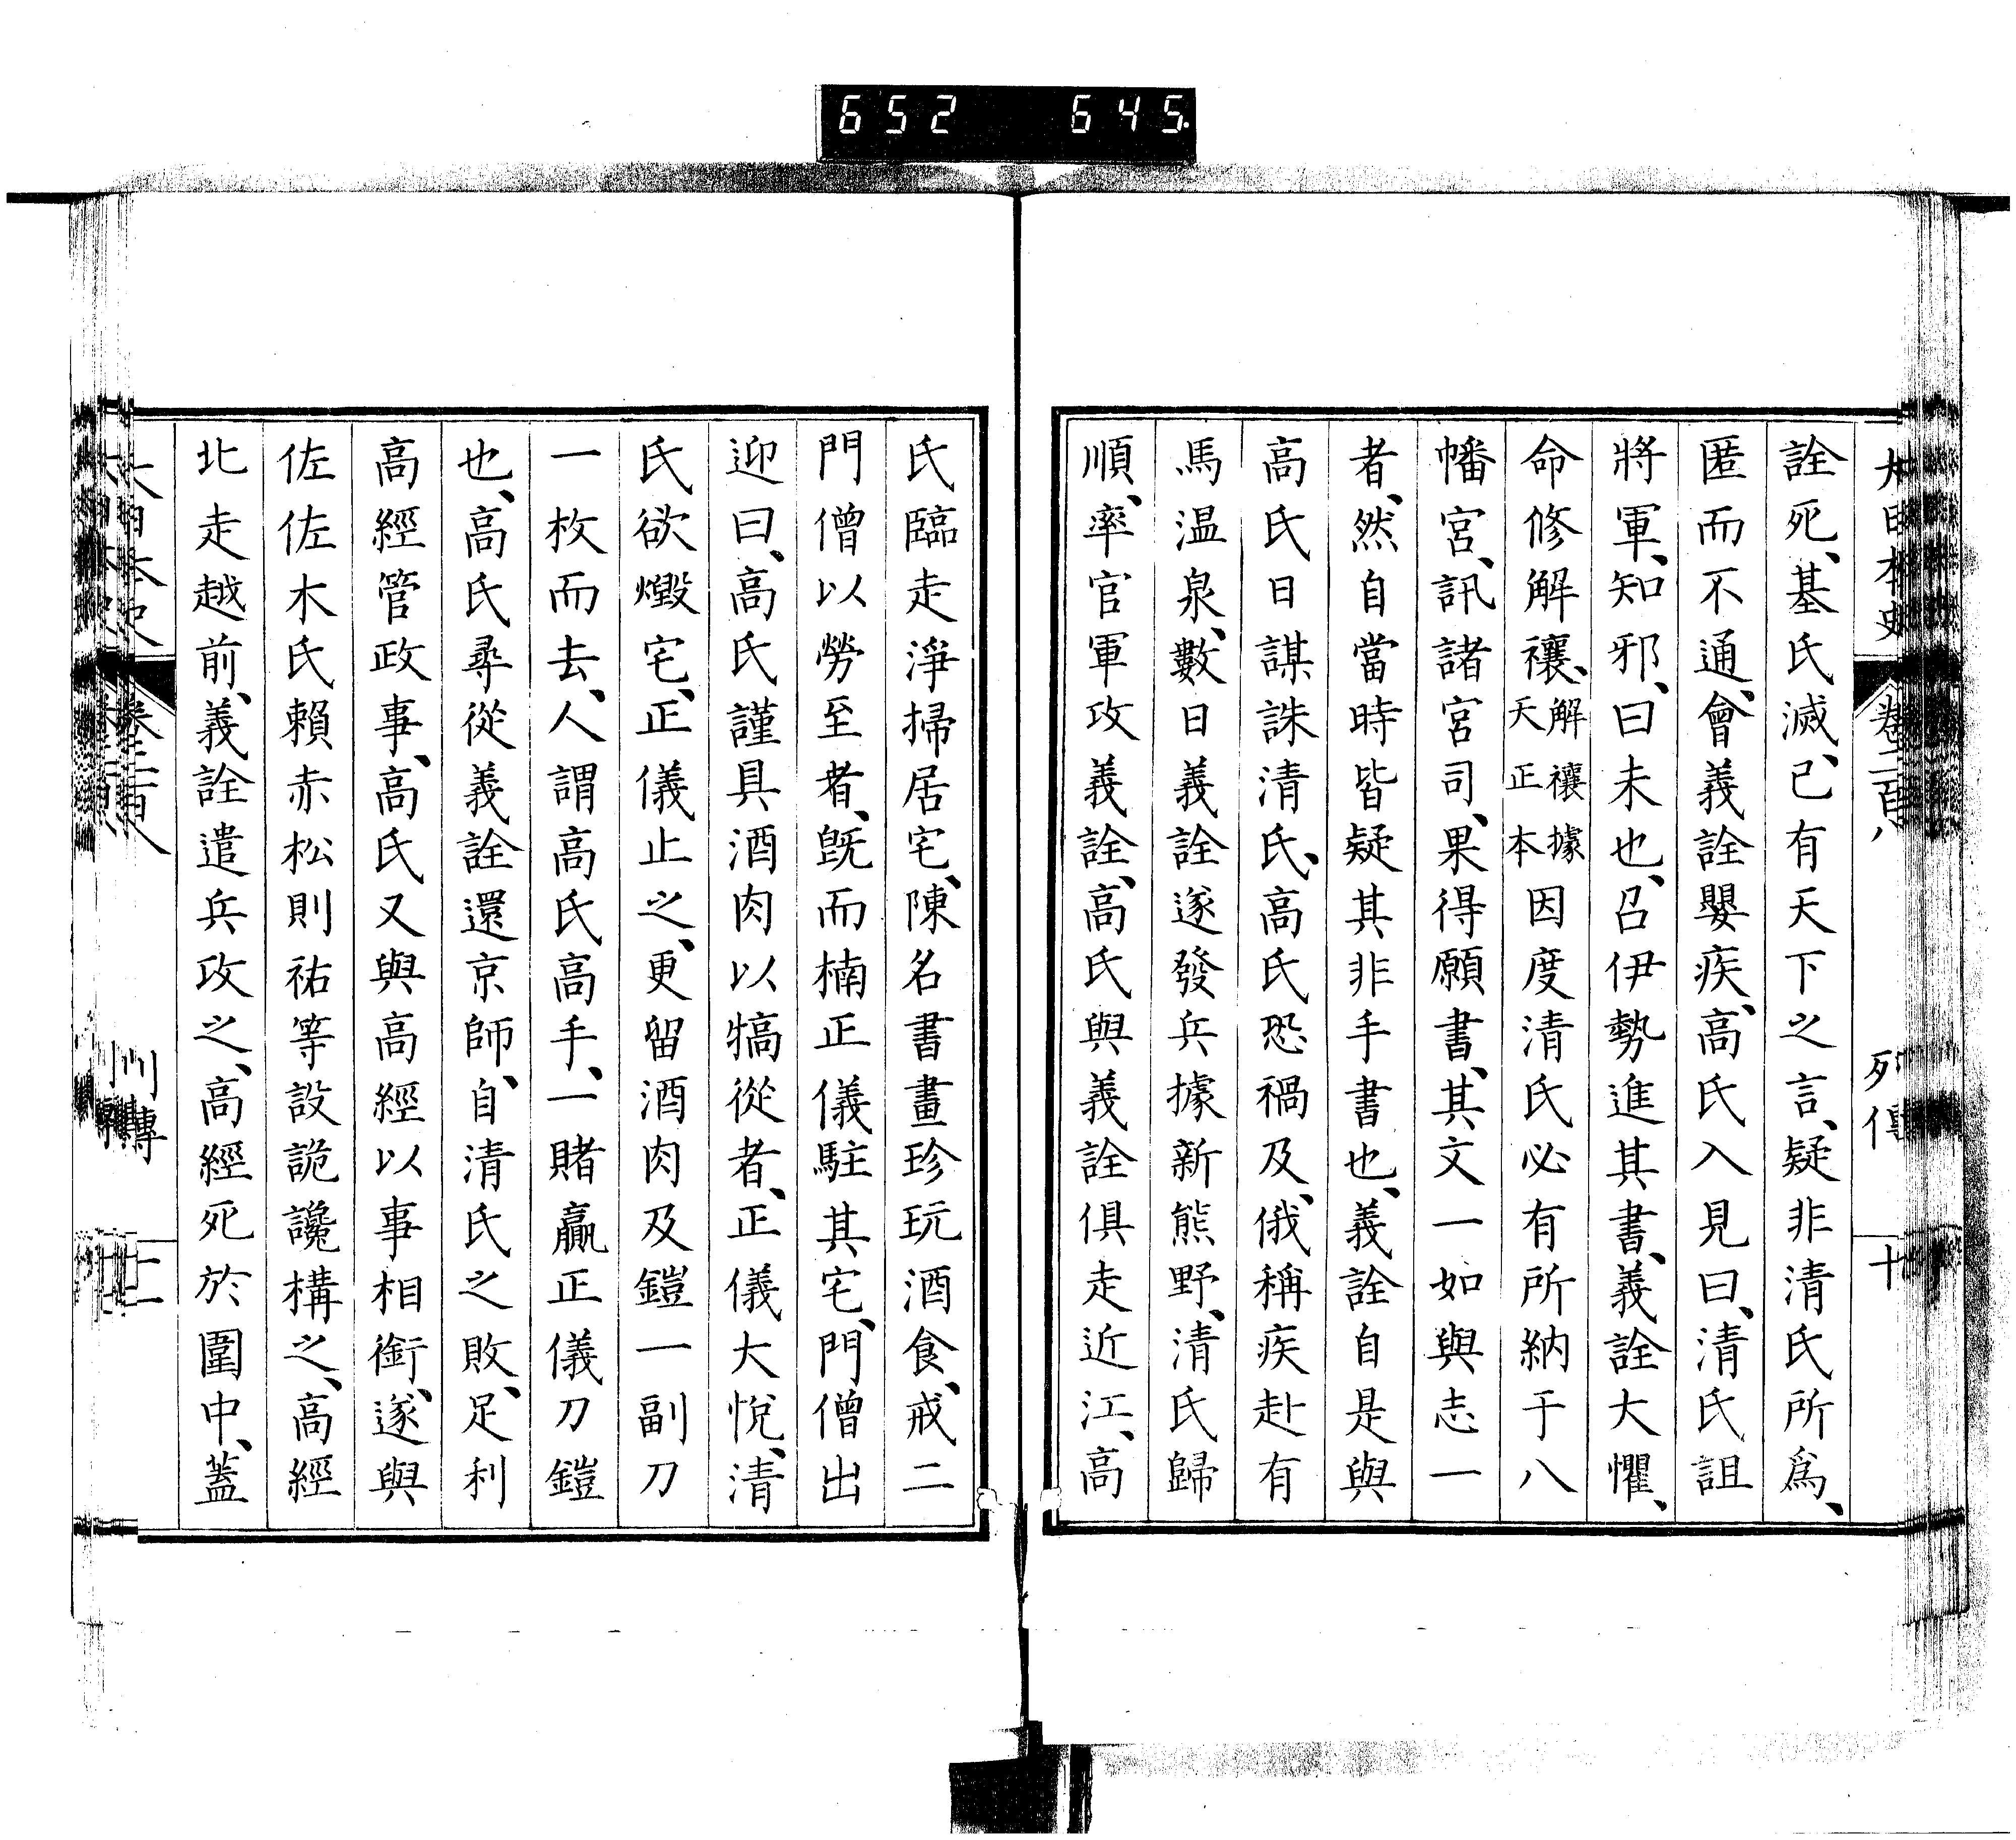 652 645
大日本史 卷二百八 列傳 十
詮死、基氏滅、已有天下之言、疑非清氏所爲、
匿而不通、會義詮嬰疾、高氏入見曰、清氏詛
將軍、知邪、曰未也、召伊勢進其書、義詮大懼、
命修解禳、解禳據天正本因度清氏必有所納于八
幡宮、訊諸宮司、果得願書、其文一如與志一
者、然自當時皆疑其非手書也、義詮自是與
高氏日謀誅清氏、高氏恐禍及、俄稱疾赴有
馬温泉、數日義詮遂發兵據新熊野、清氏歸
順、率官軍攻義詮、高氏與義詮俱走近江、高
氏臨走淨掃居宅、陳名書畫珍玩酒食、戒二
門僧以勞至者、旣而楠正儀駐其宅、門僧出
迎曰、高氏謹具酒肉以犒從者、正儀大悅、清
氏欲燬宅、正儀止之、更留酒肉及鎧一副刀
一枚而去、人謂高氏高手、一賭贏正儀刀鎧
也、高氏尋從義詮還京師、自清氏之敗、足利
高經管政事、高氏又與高經以事相銜、遂與
佐佐木氏賴赤松則祐等設詭讒構之、高經
北走越前、義詮遣兵攻之、高經死於圍中、蓋